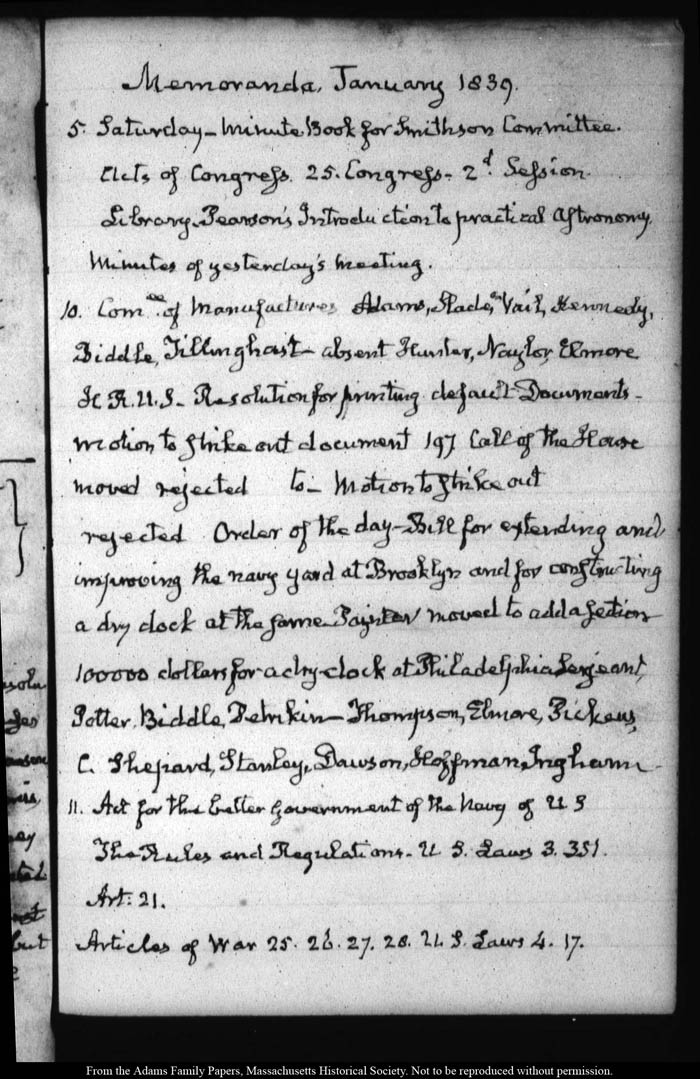 Memoranda, January 1839.
5. Saturday – Minute Book for Smithson Committee.
Acts of Congress. 25. Congress – 2d. Session.
Library. Pearson's Introduction to practical Astronomy.
Minutes of yesterday's meeting.
10. Comee. of Manufactures Adams, Slade, Vail, Kennedy,
Biddle, Tillinghast – absent Hunter, Naylor, Elmore
H. R. U. S – Resolution for printing default Documents –
motion to strike out document 197 Call of the House
moved rejected to – Motion to strike out
rejected Order of the day – Bill for extending and
improving the navy yard at Brooklyn and for constructing
a dry dock at the same. Paynter moved to add a section
100000 dollars for a dry-dock at Philadelphia Sergeant,
Potter, Biddle, Petrikin – Thompson, Elmore, Pickens,
C. Shepard, Stanley, Dawson, Hoffman, Ingham –
11. Act for the better Government of the Navy of U S
The Rules and Regulations – U. S. Laws 3. 351.
Art: 21.
Articles of War 25. 26. 27. 28. U. S. Laws 4. 17.
but
From the Adams Family Papers, Massachusetts Historical Society. Not to be reproduced without permission.